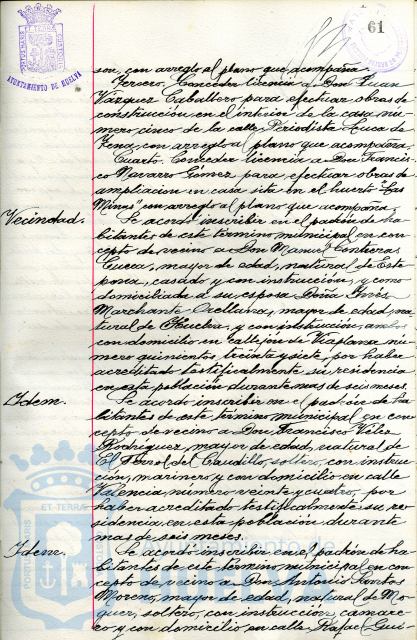 61
AYUNTAMIENTO DE HUELVA
son, con arreglo al plano que acompaña.
Tercero. Conceder licencia a Don Juan
Vazquez Caballero para efectuar obras de
construcción en el interior de la casa nú-
mero cinco de la calle Periodista Luca de
Tena, con arreglo al plano que acompaña.
Cuarto. Conceder licencia a Don Francis-
co Navarro Gómez para efectuar obras de
ampliacion en casa sita en el huerto "Las
Minas" con arreglo al plano que acompaña.
Vecindad.
Se acordó inscribir en el padrón de ha-
bitantes de este término municipal en con-
cepto de vecino a Don Manuel Contreras
Cueca, mayor de edad, natural de Este
pona, casado y con instrucción, y como
domiciliada a su esposa Doña Inés
Marchante Orellana, mayor de edad, na-
tural de Huelva, y con instrucción, ambos
con domicilio en callejón de Viaplana nú-
mero quinientos treinta y siete, por haber
acreditado testificalmente su residencia
en esta población durante mas de seis meses.
Idem.
Se acordó inscribir en el padrón de ha-
bitantes de este término municipal en con-
cepto de vecino a Don Francisco Vélez
Rodriguez, mayor de edad, natural de
El Ferrol del Caudillo, soltero, con instruc-
ción, marinero y con domicilio en calle
Valencia, número veinte y cuatro, por
haber acreditado testificalmente su re-
sidencia en esta población durante
mas de seis meses.
Idem.
Se acordó inscribir en el padrón de ha-
bitantes de este término municipal en con-
cepto de vecino a Don Antonio
Moreno, mayor de edad, natural de Mo-
guer, soltero, con instrucción, camare-
ro y con domicilio en calle Rafael Gui-